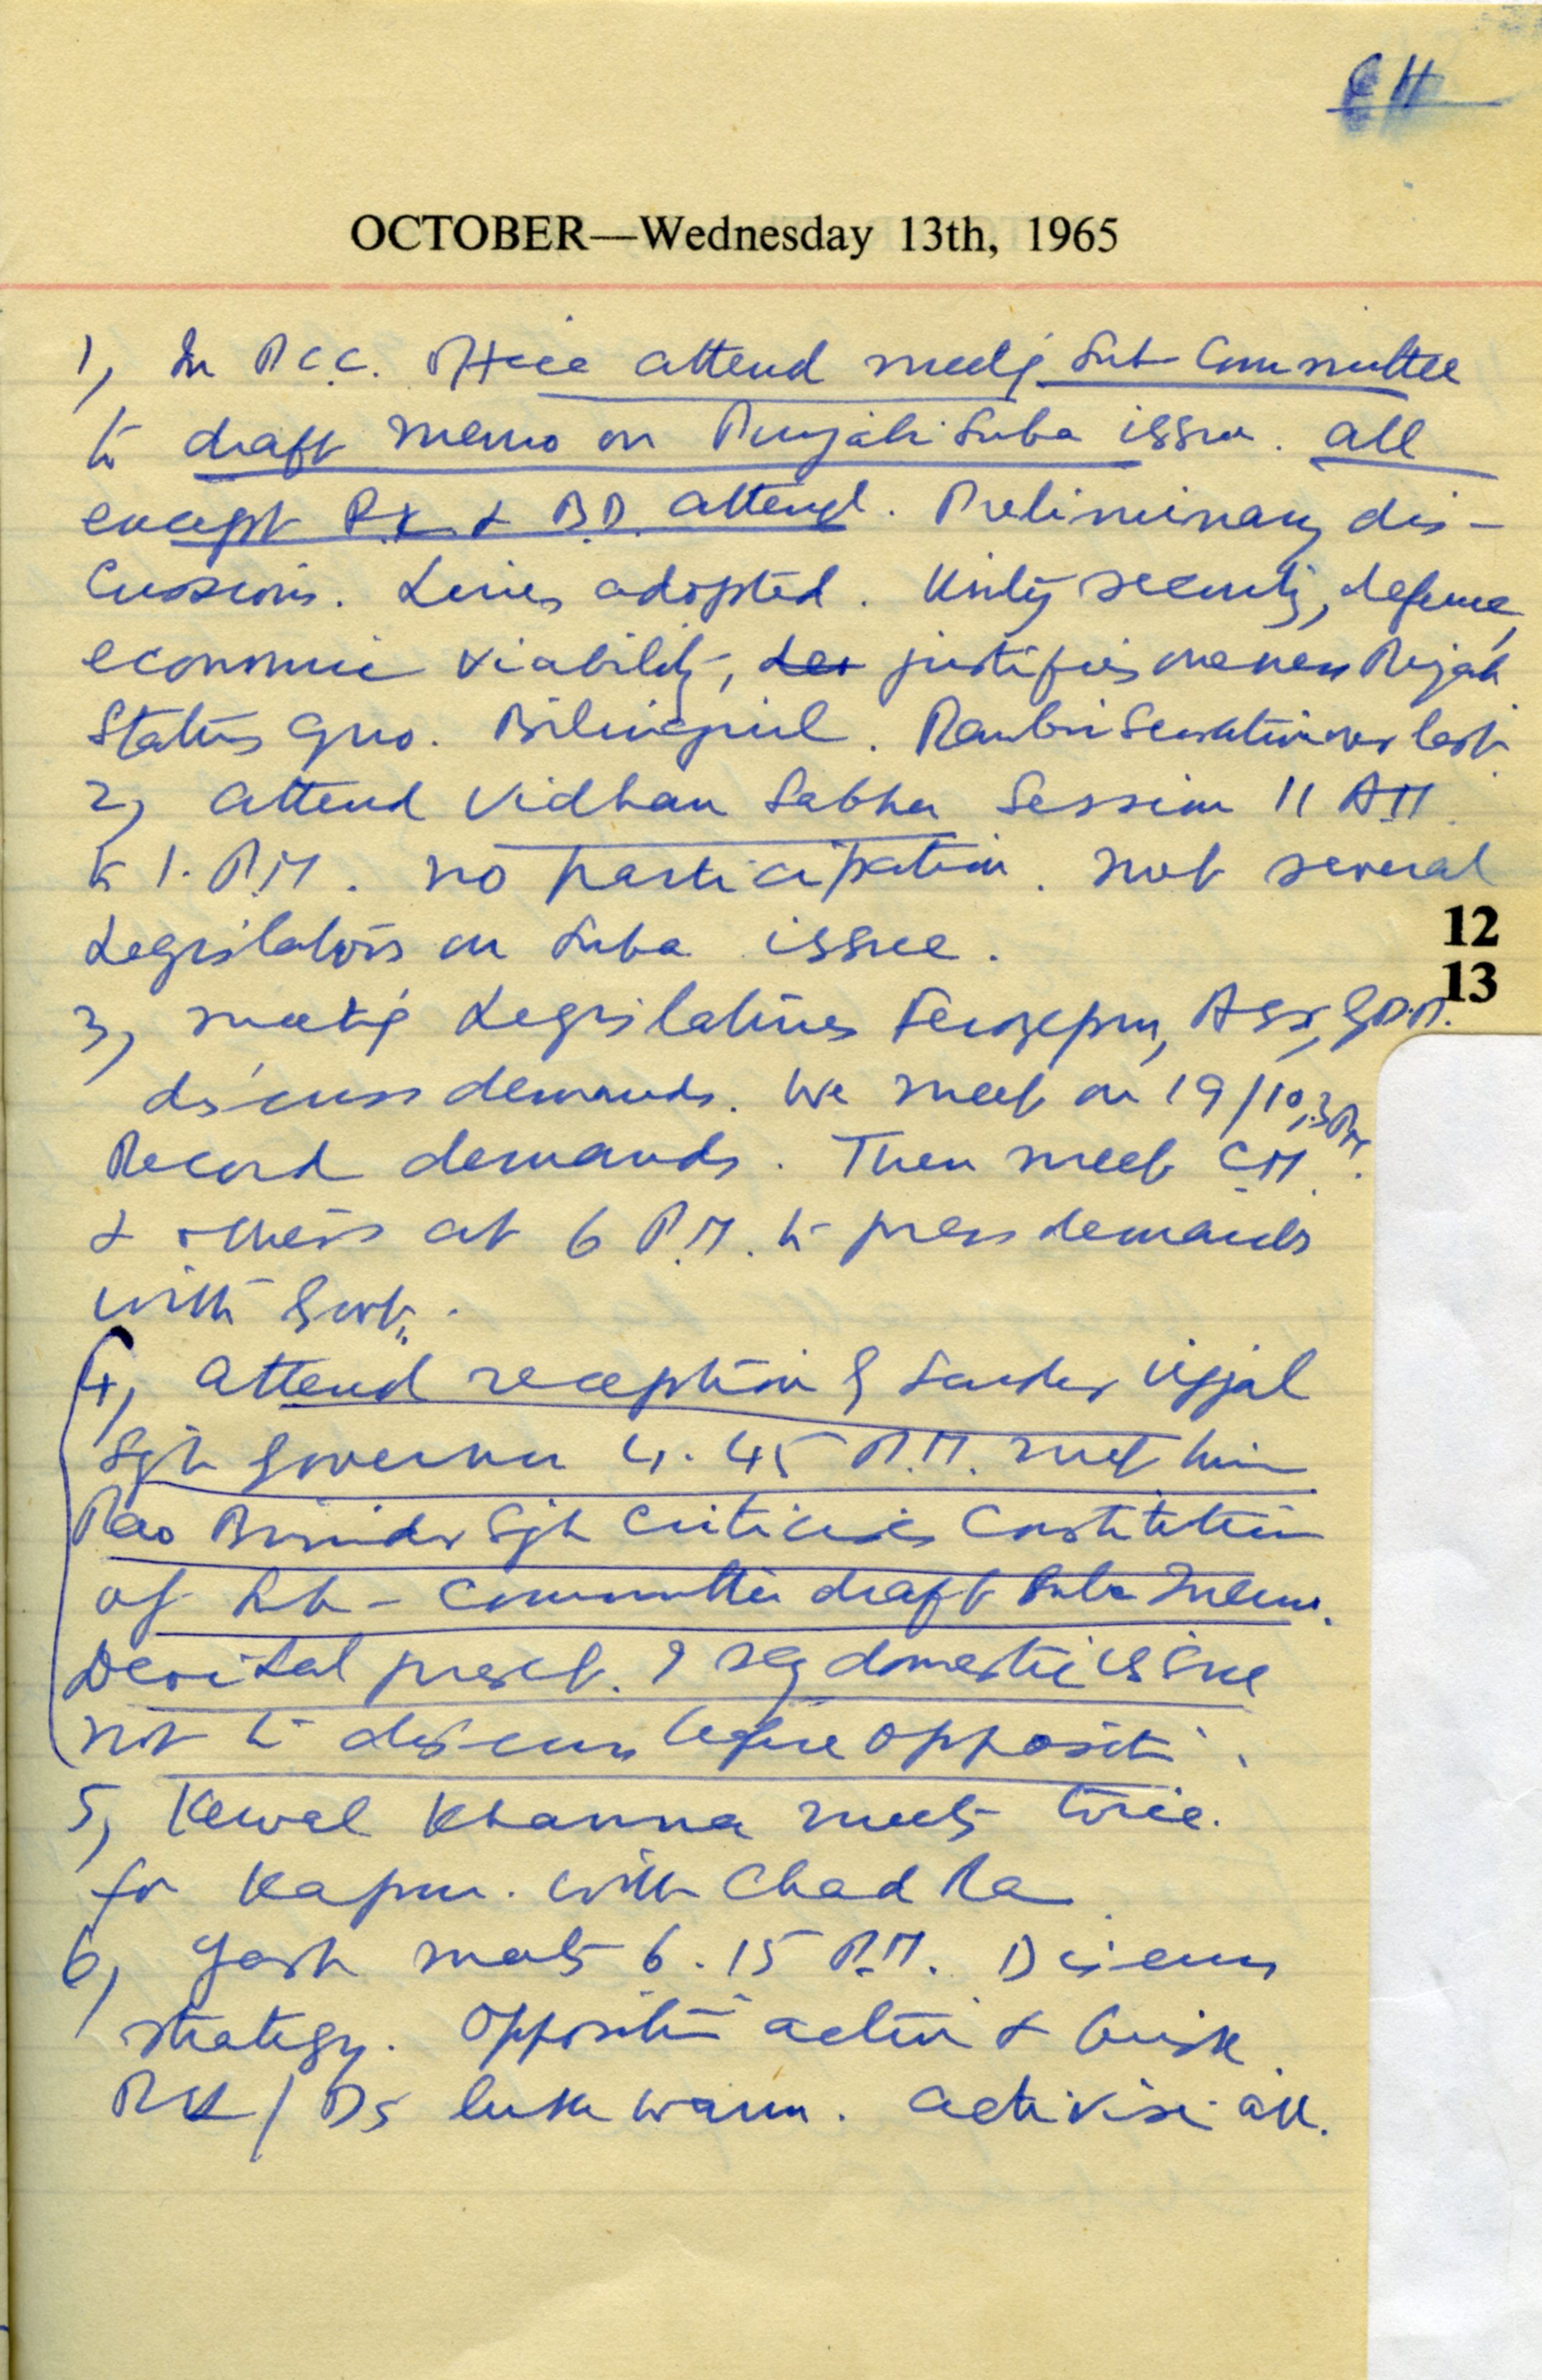 CH
OCTOBER—Wednesday 13th, 1965
1, In P.C.C. Office attend meetg Sub Committee
to draft memo on Punjabi Suba issue. all
except P.K & B.D. attend. Preliminary dis-
cussions. Lines adopted. Unity security, defence,
economic viability, justifies Punjab
Status quo. Bilingual.
2, attend Vidhan Sabha Session 11 AM
to 1. P.M. no participation. met several
Legislators on Suba issue.
3, meetg Legislatures Ferozepur, Asr, GD.P.
discuss demands. We meet on 19/10, 3 PM
Record demands. Then meet CM.
& others at 6 P.M. to press demands
with Govt.
4, attend reception of Sardar Ujjal
Sgh Governor 4.45 P.M. met him
Rao Birinder Sgh criticises Constitution
of Sub-Committee draft Suba Memo.
Devi Lal present. I say domestic issue
not to discuss before oppositi.
5, Kewal Khanna meets twice.
for Kapur. with Chad Ra
6, Yash meets 6.15 P.M. Discuss
strategy. Opposition active & brisk.
RK / DS luke warm. activise all.
12
13